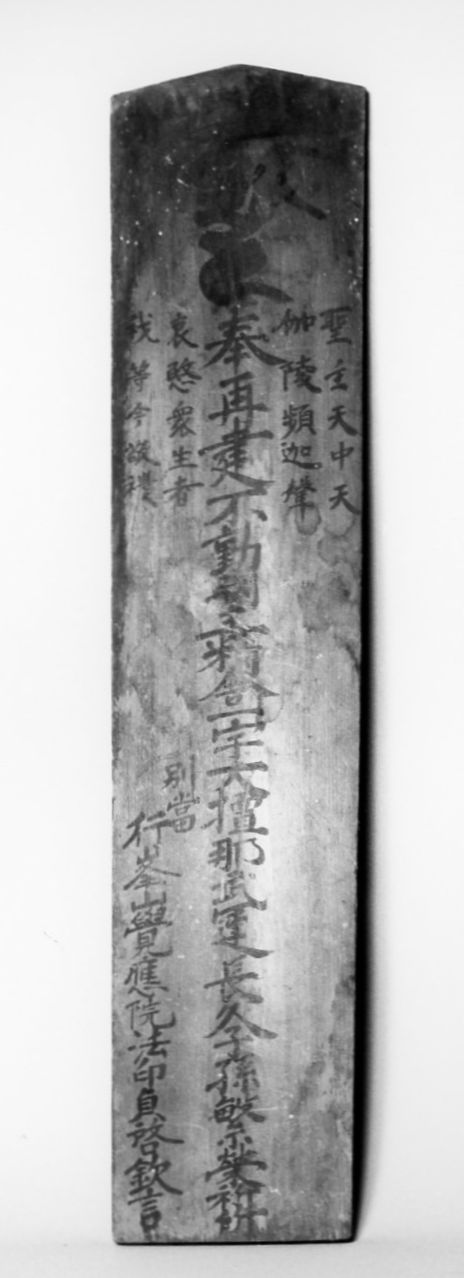 聖主天中天
伽陵頻迦聲
奉再建不動明王舍一宇大檀那武運長久子孫繁榮祈
哀愍衆生者
我等今敬禮
別當
行峯山覺應院法印貞啓欽言